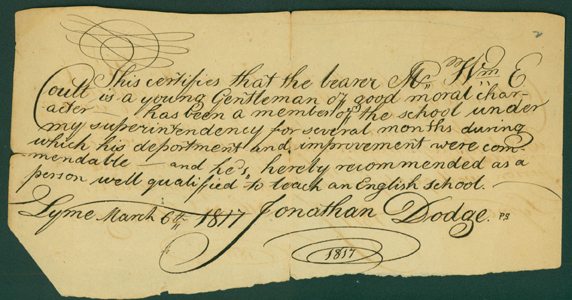 This certifies that the bearer Mr Wm E
Coult is a young Gentleman of good moral char-
acter has been a member of the school under
my superintendency for several months during
which his deportment and improvement were com
mendable — and he's, hereby recommended as a
person well qualified to teach an English school. —
Lyme March 6th 1817 Jonathan Dodge. PS
1817
2